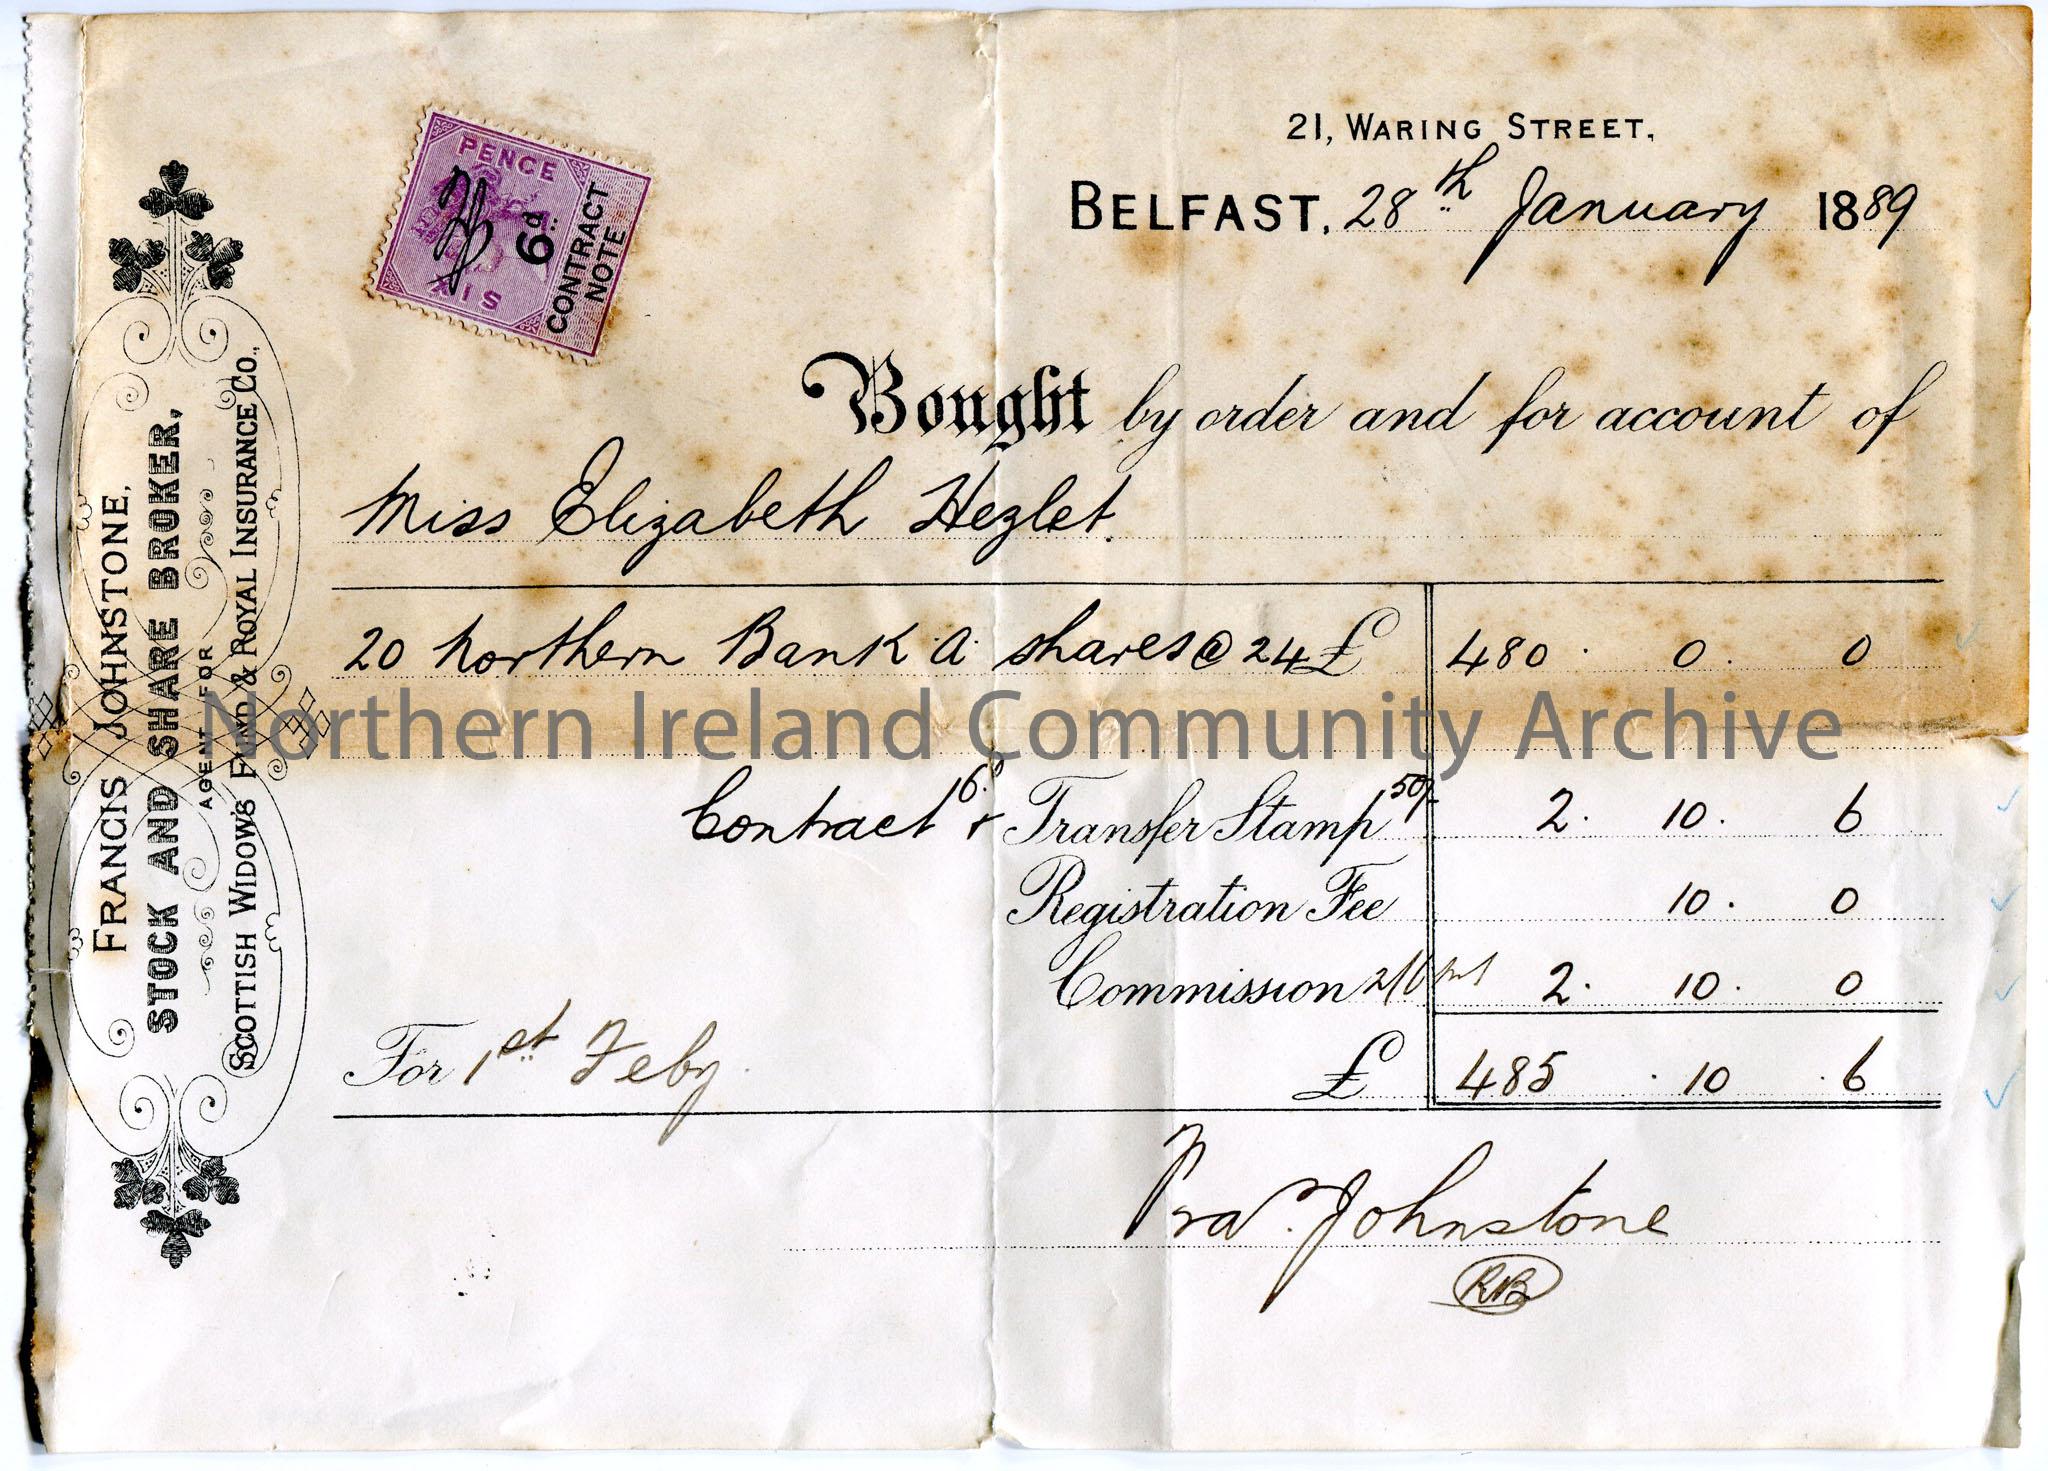 21, WARING STREET,
BELFAST, 28th January 1889
PENCE
SIX
6d
CONTRACT
NOTE
Bought by order and for account of
Miss Elizabeth Hezlet.
20 Northern Bank A shares @ 24£ 480. 0. 0
Northern Ireland Community Archive
Contract 6d & Transfer Stamp 50/- 2. 10. 6
Registration Fee 10. 0
Commission 2/6 2. 10. 0
For 1st Feby. £ 485. 10. 6
Fras. Johnstone
RB
FRANCIS JOHNSTONE,
STOCK AND SHARE BROKER,
AGENT FOR
SCOTTISH WIDOWS FUND & ROYAL INSURANCE CO.,